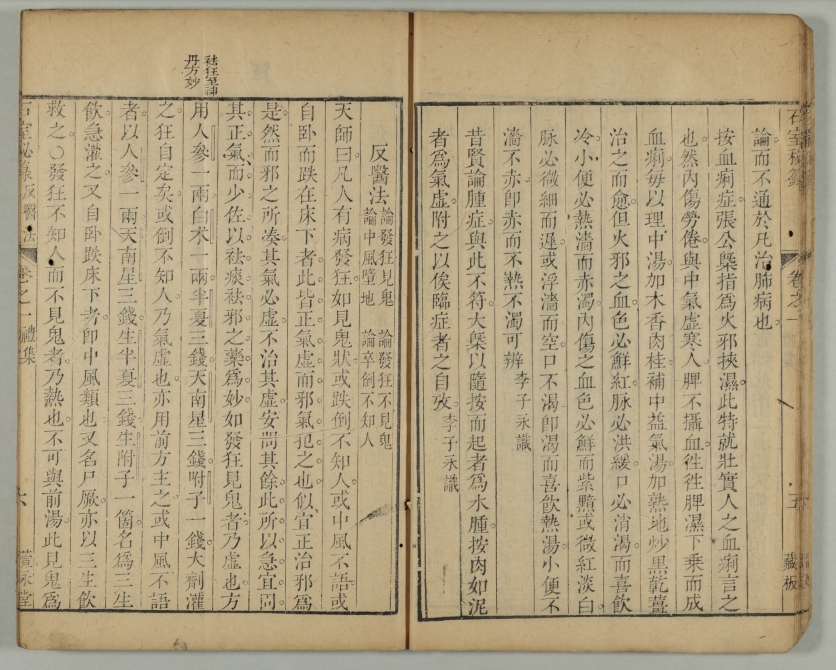 石室秘錄 卷之一 五 藏板
論而不通於凡治肺病也
按血痢症張公槩指為火邪挾濕此特就壯實人之血痢言之
也然內傷勞倦與中氣虛寒人脾不攝血徃徃脾濕下乗而成
血痢毎以理中湯加木香肉桂補中益氣湯加熟地炒黒乾薑
治之而愈但火邪之血色必鮮紅脉必洪緩口必消渴而喜飲
冷小便必熱濇而赤濁內傷之血色必鮮而紫黯或微紅淡白
脉必微細而遲或浮濇而空口不渴即渴而喜飲熱湯小便不
濇不赤即赤而不熱不濁可辨 李子永識
昔賢論腫症與此不符大槩以隨按而起者為水腫按肉如泥
者為氣虛附之以俟臨症者之自攷 李子永識
反醫法 論發狂見鬼 論發狂不見鬼
論中風墮地 論卒倒不知人
天師曰凡人有病發狂如見鬼狀或跌倒不知人或中風不語或
自卧而跌在床下者此皆正氣虛而邪氣犯之也似宜正治邪為
是然而邪之所凑其氣必虛不治其虛安問其餘此所以急宜固
其正氣而少佐以祛痰祛邪之藥為妙如發狂見鬼者乃虛也方
祛狂至神
丹方妙
用人參一兩白朮一兩半夏三錢天南星三錢附子一錢大劑灌
之狂自定矣或倒不知人乃氣虛也亦用前方主之或中風不語
者以人參一兩天南星三錢生半夏三錢生附子一箇名為三生
飲急灌之又自卧跌床下者即中風類也又名尸厥亦以三生飲
救之○發狂不知人而不見鬼者乃熱也不可與前湯此見鬼為
石室秘錄反醫法 卷之一禮集 六 萱永堂